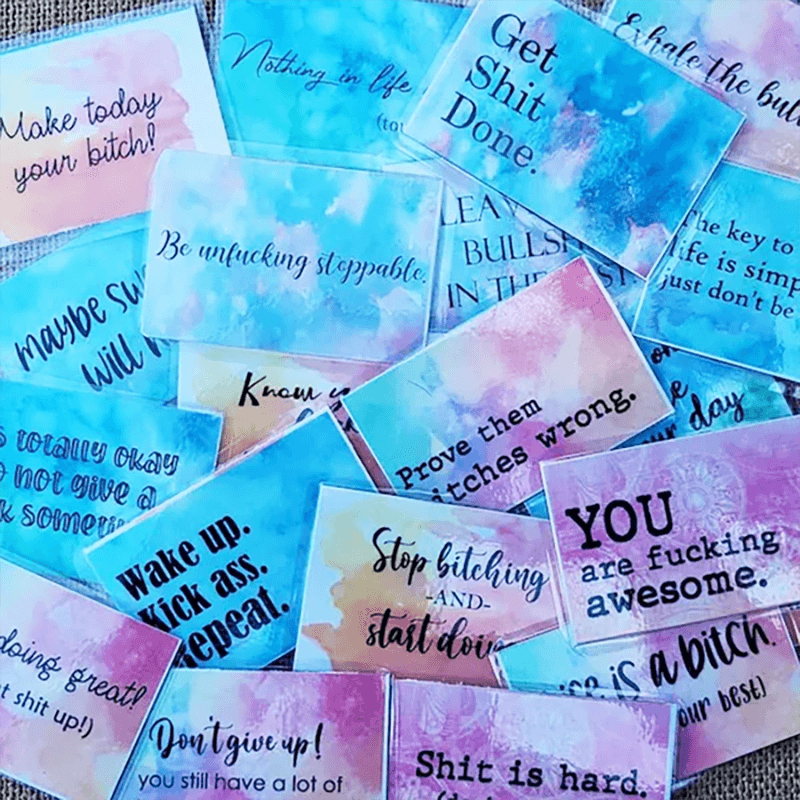 Make today
your bitch!
Nothing in life
Get
Shit
Done.
Exhale the
Be unfucking stoppable.
IN THE
The key to
life is
just don't be
maybe
will
Know
Prove them
bitches wrong.
day
totally okay
not give a
Wake up.
Kick ass.
Repeat.
Stop bitching
-AND-
start
YOU
are fucking
awesome.
doing great!
shit up!)
is a bitch.
our best)
Don't give up!
you still have a lot of
Shit is hard.